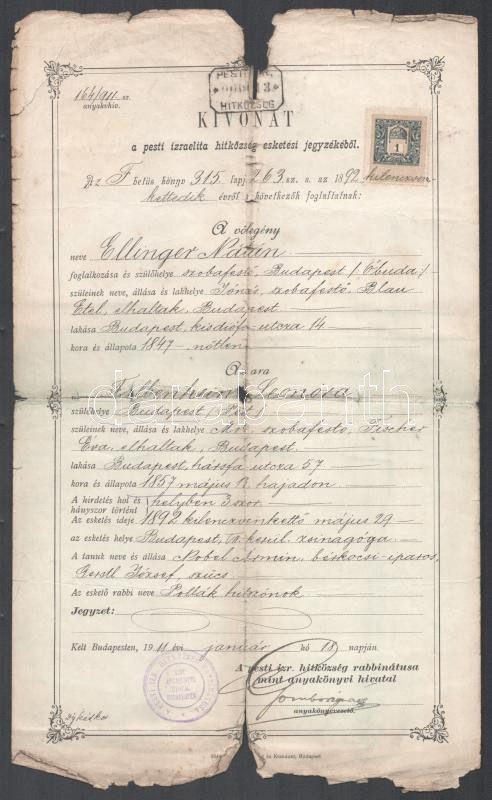 164/911 sz.
anyakchiv.
PESTI IZR.
HITKÖZSÉG
KIVONAT
a pesti izraelita hitközség esketési jegyzékéből.
1
Az F betűs könyv 315. lapj 263. sz. a. az 1892 kilenczven
kettedik évről a következők foglaltatnak:
A vőlegény
neve Ellinger Nátán
foglalkozása és szülőhelye szobafestő, Budapest (Óbuda)
szüleinek neve, állása és lakhelye Jónás, szobafestő, Blau
Etel, elhaltak, Budapest
lakása Budapest, kisdiófa utcza 14
kora és állapota 1847 nőtlen
A ara
neve Leonora
szülőhelye Budapest (Pest)
szüleinek neve, állása és lakhelye Mór, szobafestő, Fischer
Éva, elhaltak, Budapest.
lakása Budapest, hársfa utcza 57
kora és állapota 1857 május 12. hajadon.
A hirdetés hol és helyben 3szor.
hányszor történt
Az esketés ideje 1892 kilenczvenkettő május 29
az esketés helye Budapest, kerül. zsinagóga.
A tanuk neve és állása Nobel Ármin, bérkocsi-iparos,
Gerstl József, szűcs.
Az eskető rabbi neve Pollák
Jegyzet:
Kelt Budapesten, 1911 évi január hó 18 napján
A pesti izr. hitközség rabbinátusa
mint anyakönyvi hivatal
anyakönyvvezető.
és Kremnitz, Budapest
darabanth